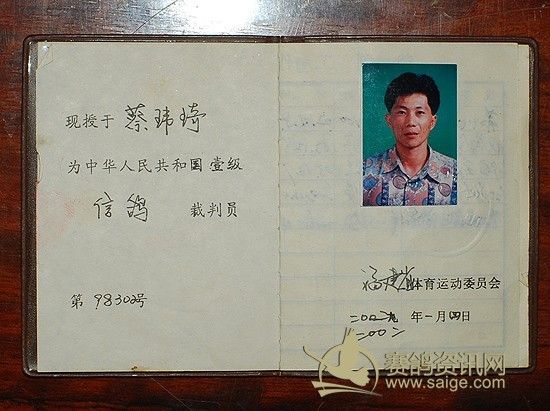 现授于 蔡玮琦
为中华人民共和国壹级
信鸽 裁判员
第 98302号
福建省体育运动委员会
年一月四日
二00二
赛鸽资讯网
www.saige.com